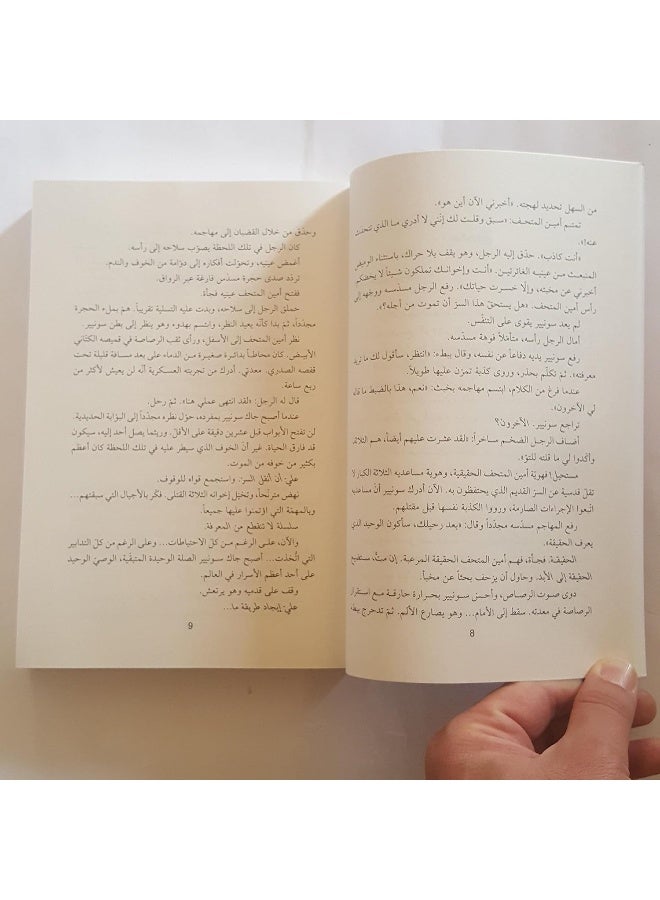 من السهل تحديد لهجته. «أخبرني الآن أين هو».
تمتم أمين المتحف: «سبق وقلت لك إنّني لا أدري ما الذي تتحدث
عنه!».
«أنت كاذب». حدّق إليه الرجل، وهو يقف بلا حراك، باستثناء الوميض
المنبعث من عينيه الغائرتين. «أنت وإخوانك تملكون شيئاً لا يخصكم.
أخبرني عن مخبئه، وإلّا خسرت حياتك». رفع الرجل مسدّسه ووجّهه إلى
رأس أمين المتحف. «هل يستحقّ هذا السرّ أن تموت من أجله؟».
لم يعد سونيير يقوى على التنفّس.
أمال الرجل رأسه، متأملاً فوهة مسدّسه.
رفع سونيير يديه دفاعاً عن نفسه، وقال ببطء: «انتظر، سأقول لك ما تريد
معرفته». ثمّ تكلّم بحذر، وروى كذبة تمرّن عليها طويلاً.
عندما فرغ من الكلام، ابتسم مهاجمه بخبث: «نعم، هذا بالضبط ما قاله
لي الآخرون».
تراجع سونيير. الآخرون؟
أضاف الرجل الضخم ساخراً: «لقد عثرت عليهم أيضاً، هم الثلاثة
وأكّدوا لي ما قلته للتوّ».
مستحيل! فهويّة أمين المتحف الحقيقية، وهوية مساعديه الثلاثة الكبار لا
تقلّ قدسية عن السرّ القديم الذي يحتفظون به. الآن أدرك سونيير أنّ مساعديه
اتّبعوا الإجراءات الصارمة، ورووا الكذبة نفسها قبل مقتلهم.
رفع المهاجم مسدّسه مجدّداً وقال: «بعد رحيلك، سأكون الوحيد الذي
يعرف الحقيقة».
الحقيقة. فجأة، فهم أمين المتحف الحقيقة المرعبة. إن متّ، ستضيع
الحقيقة إلى الأبد. وحاول أن يزحف بحثاً عن مخبأ.
دوى صوت الرصاص، وأحسّ سونيير بحرارة حارقة مع استقرار
الرصاصة في معدته. سقط إلى الأمام... وهو يصارع الألم. ثمّ تدحرج ببطء
8
وحدّق من خلال القضبان إلى مهاجمه.
كان الرجل في تلك اللحظة يصوّب سلاحه إلى رأسه.
أغمض عينيه، وتحوّلت أفكاره إلى دوّامة من الخوف والندم.
تردّد صدى حجرة مسدّس فارغة عبر الرواق.
ففتح أمين المتحف عينيه فجأة.
حملق الرجل إلى سلاحه، وبدت عليه التسلية تقريباً. همّ بملء الحجرة
مجدّداً، ثمّ بدا كأنّه يعيد النظر، وابتسم بهدوء وهو ينظر إلى بطن سونيير.
نظر أمين المتحف إلى الأسفل، ورأى ثقب الرصاصة في قميصه الكتّاني
الأبيض. كان محاطاً بدائرة صغيرة من الدماء على بعد مسافة قليلة تحت
قفصه الصدري. معدتي. أدرك من تجربته العسكرية أنّه لن يعيش لأكثر من
ربع ساعة.
قال له الرجل: «لقد انتهى عملي هنا». ثمّ رحل.
عندما أصبح جاك سونيير بمفرده، حوّل نظره مجدّداً إلى البوّابة الحديدية.
لن تفتح الأبواب قبل عشرين دقيقة على الأقلّ. وريثما يصل أحد إليه، سيكون
قد فارق الحياة. غير أنّ الخوف الذي سيطر عليه في تلك اللحظة كان أعظم
بكثير من خوفه من الموت.
عليّ أن أنقل السرّ. واستجمع قواه للوقوف.
نهض مترنّحاً، وتخيّل إخوانه الثلاثة القتلى. فكّر بالأجيال التي سبقتهم...
وبالمهمّة التي اؤتمنوا عليها جميعاً.
سلسلة لا تنقطع من المعرفة.
والآن، على الرغم من كلّ الاحتياطات... وعلى الرغم من كلّ التدابير
التي اتّخذت... أصبح جاك سونيير الصلة الوحيدة المتبقّية، الوصيّ الوحيد
على أحد أعظم الأسرار في العالم.
وقف على قدميه وهو يرتعش.
عليّ إيجاد طريقة ما...
9